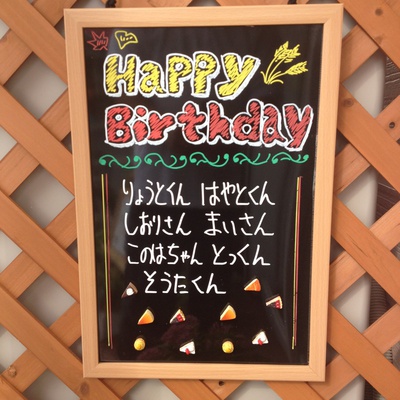 Happy
Birthday
りょうとくん はやとくん
しおりさん まいさん
このはちゃん とっくん
そうたくん